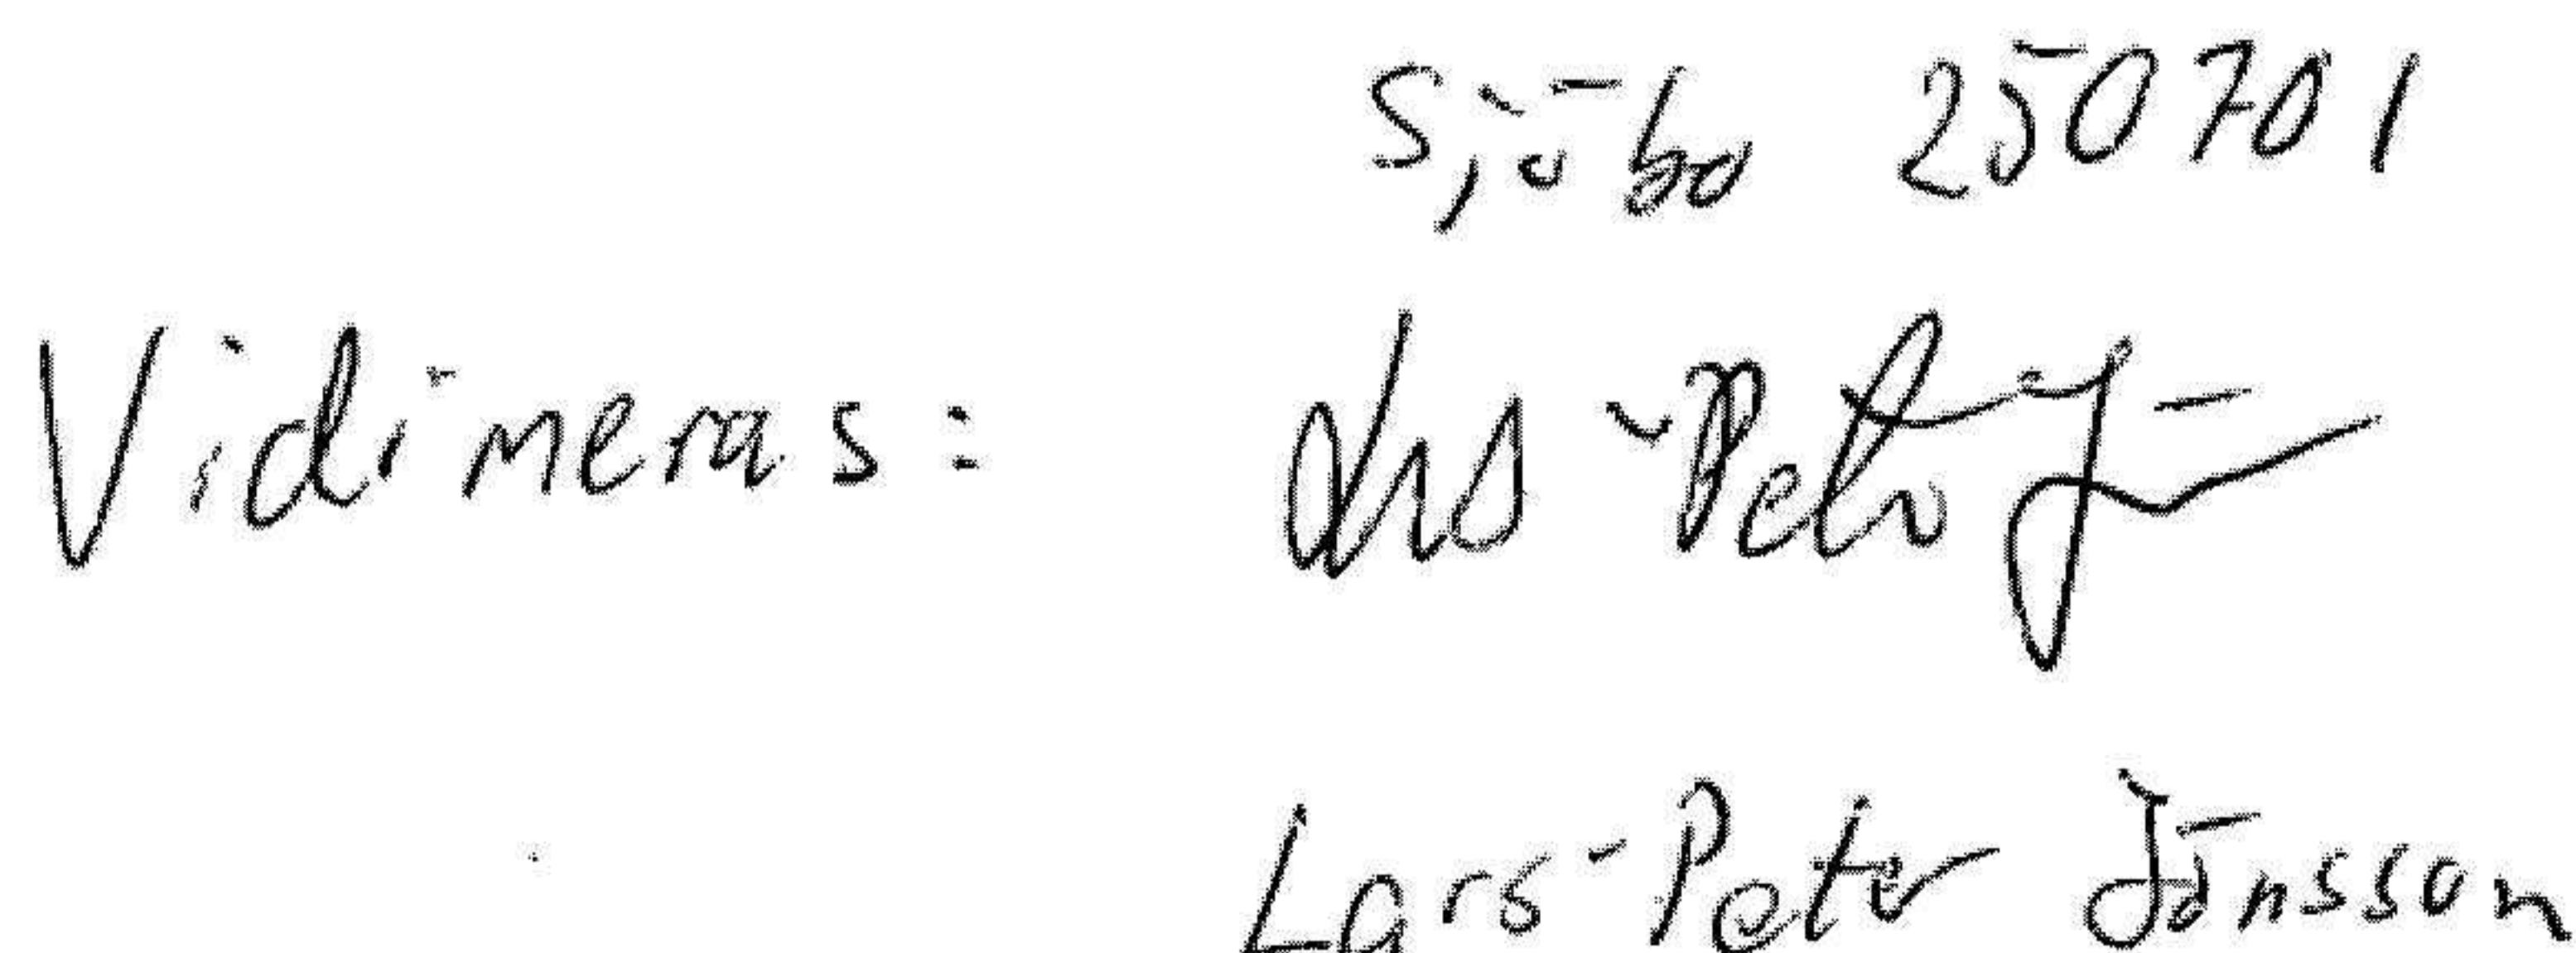 Sjöbo 250701
Vidimeras: Lars-Peter J
Lars-Peter Jönsson